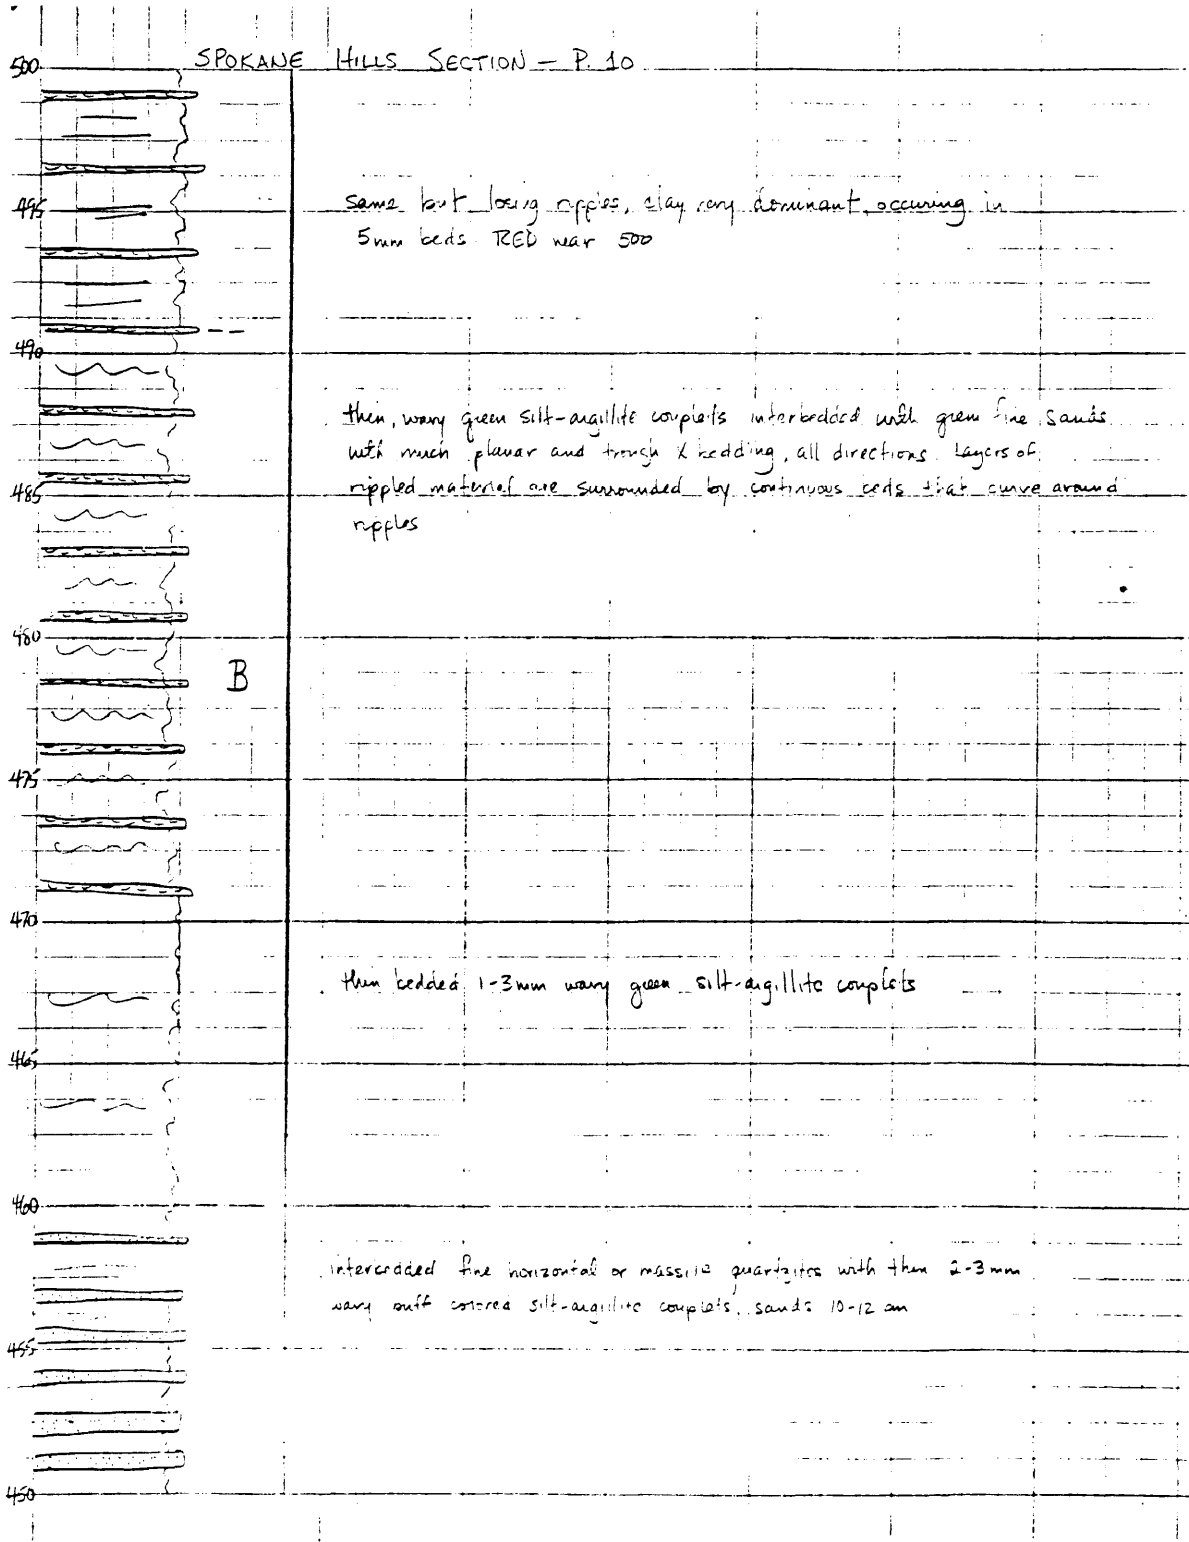 SPOKANE HILLS SECTION — P. 10
500
495
same but losing ripples, clay very dominant, occuring in
5mm beds. RED near 500
490
then, wavy green silt-argillite couplets interbedded with green fine sands
with much planar and trough X bedding, all directions. Layers of
485
rippled material are surrounded by continuous beds that curve around
ripples
480
B
475
470
then bedded 1-3mm wavy green silt-argillite couplets
465
460
interbedded fine horizontal or massive quartzites with then 2-3mm
wavy buff colored silt-argillite couplets, sands 10-12 cm
455
450